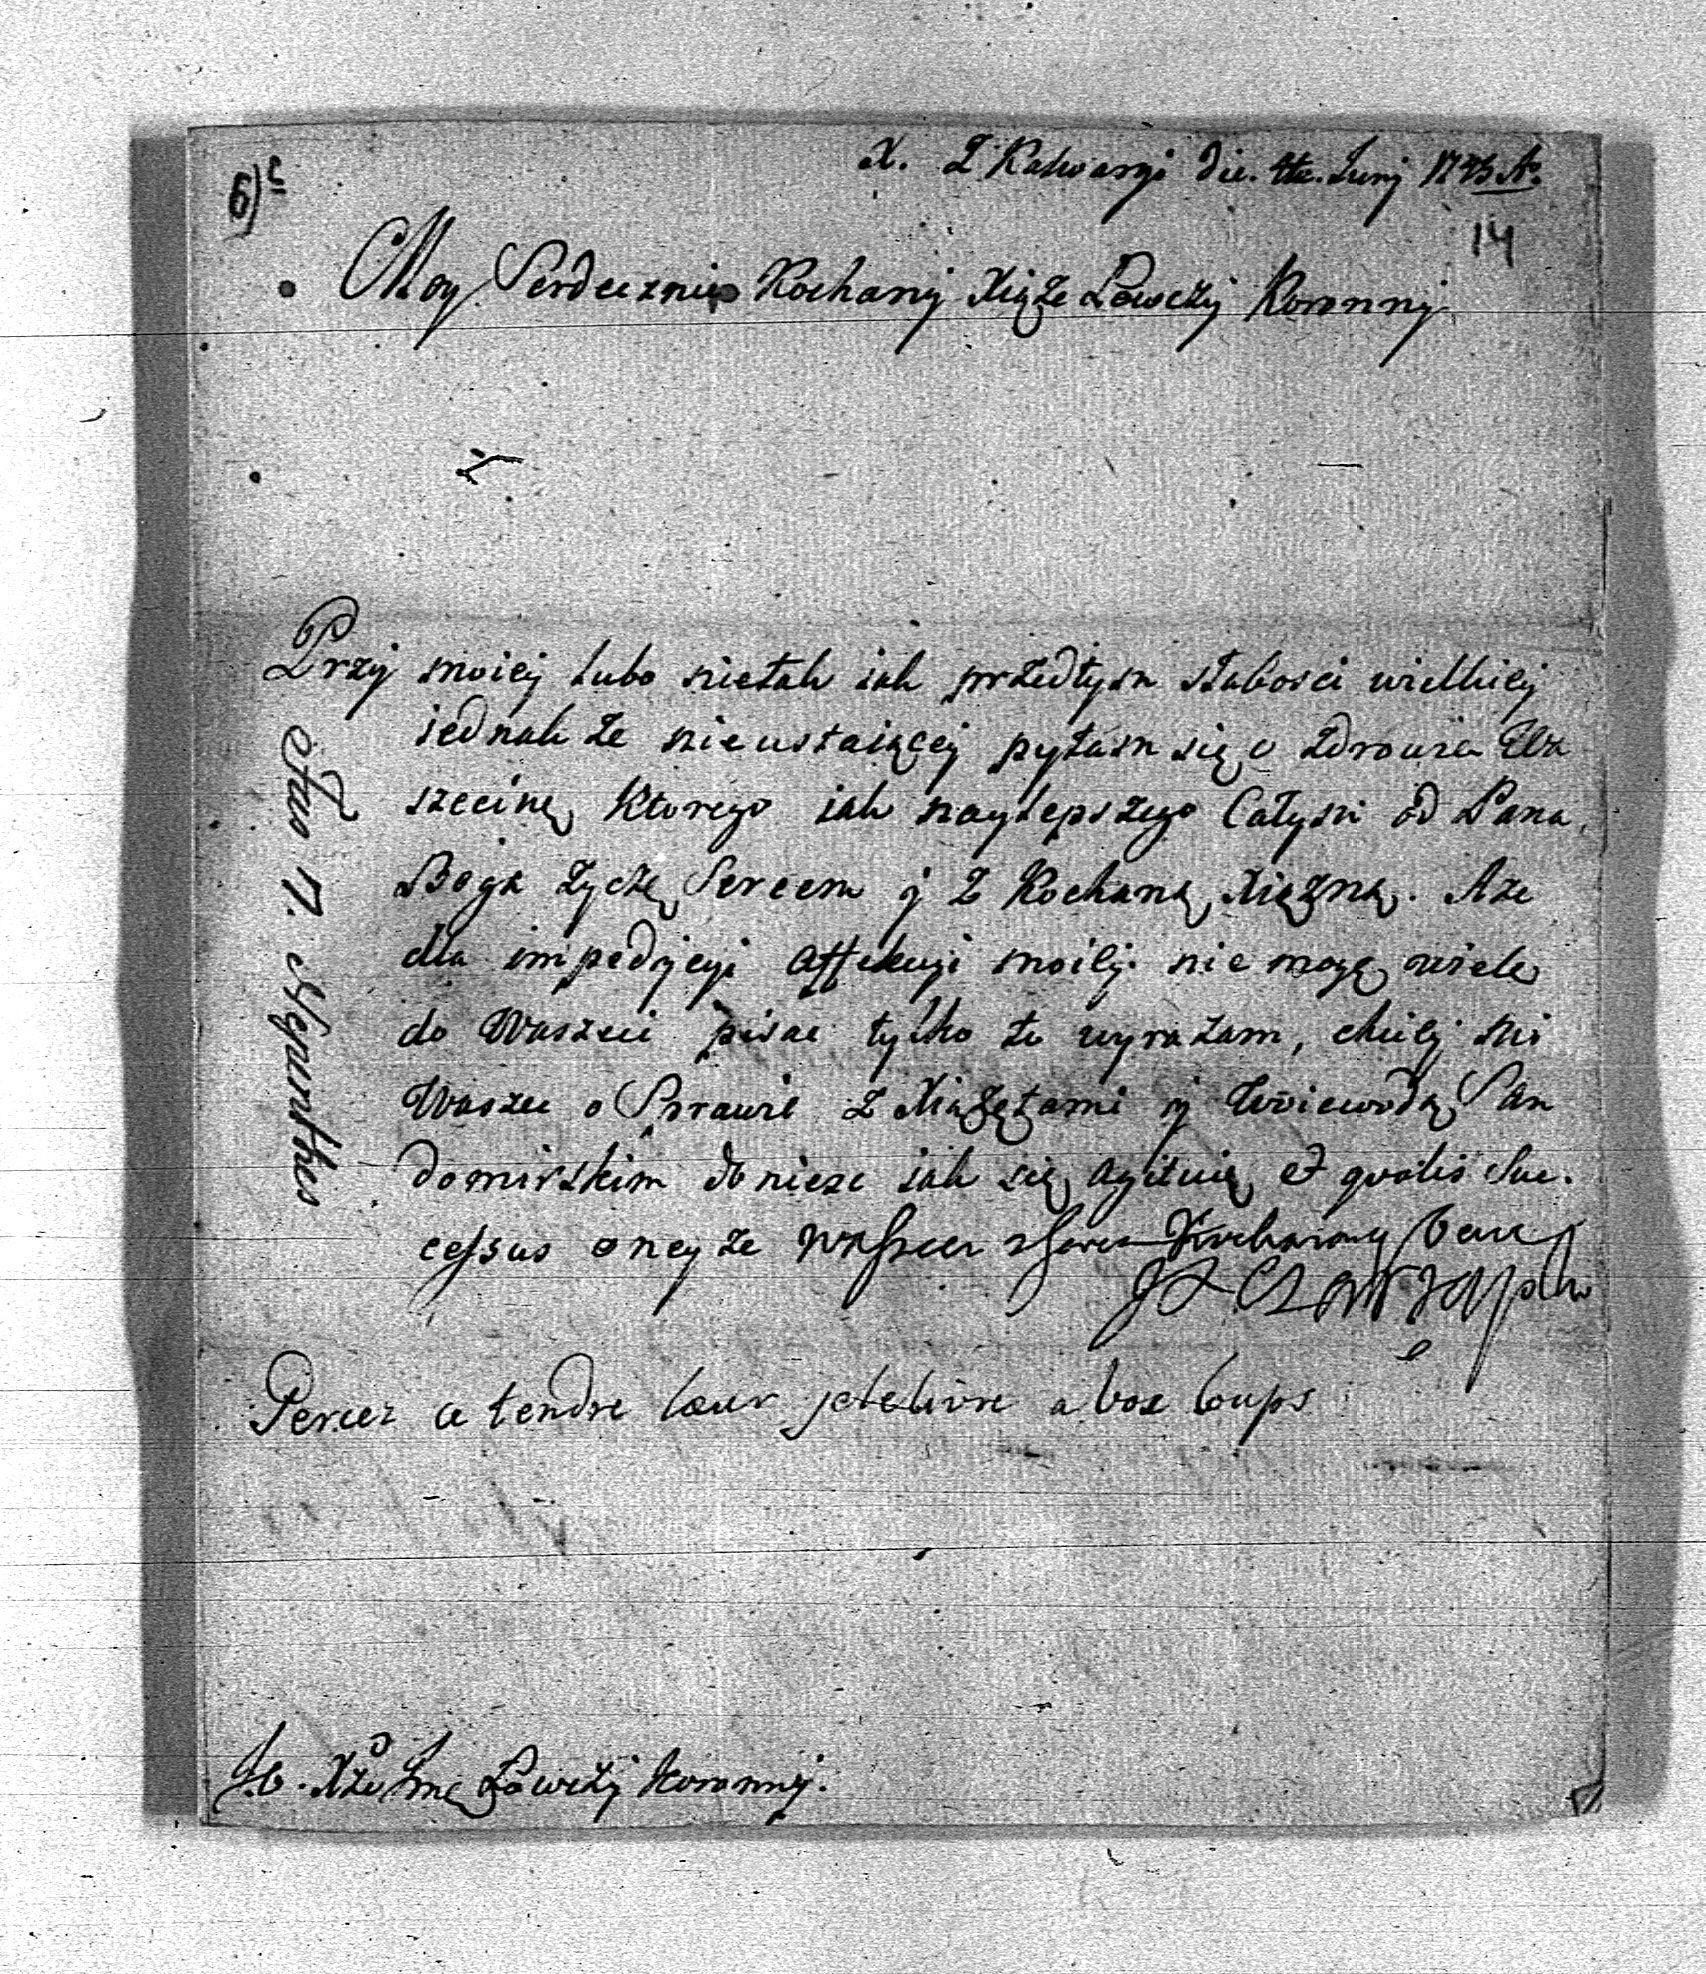 6) c
X. Z Kalwaryi die. 4ta. Junij 1743 Ao.
14
Moy Serdecznie Kochany Xiąże Łowczy Koronny
Przy moiey lubo nietak iak przedtym słabosci wielkiey
iednak że nieustaiącey pytam się o zdrowie Wa
szecine, ktorego iak naylepszego całym od Pana
Boga życzę Sercem y z Kochaną Xiężną. Aże
dla impedycyi affekcyi moiey nie mogę wiele
do Waszeci pisac tylko to wyrażam, chciey mi
Waszec o Sprawie z Xiążętami y Woiewodą San
domirskim doniesc iak się agituie, et qualis suc.
cessus oneyże Waszeci Kochaiący
Czartorysk
Percez ce tendre Cœur je le livre a vos Coups
JO. Xże Jmę Łowczy Koronny.